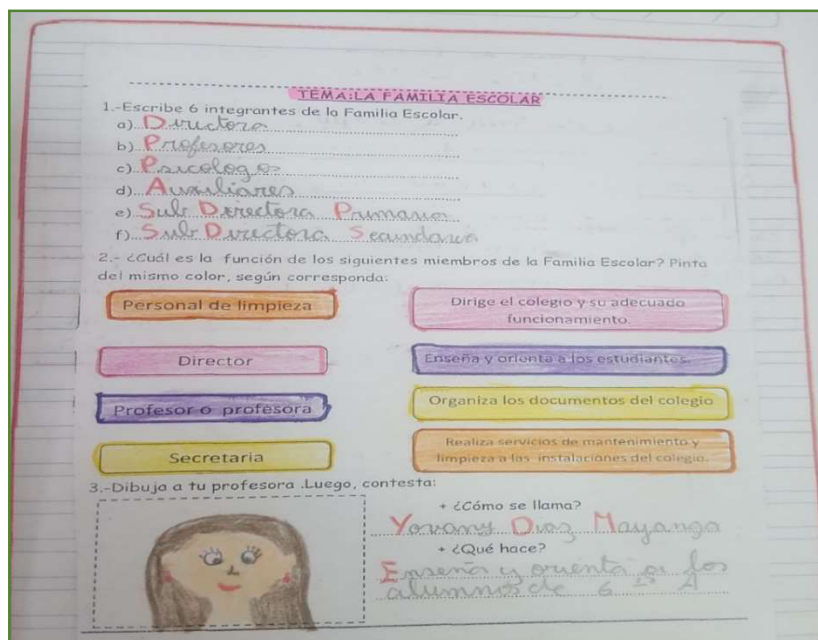 TEMA:LA FAMILIA ESCOLAR
1.-Escribe 6 integrantes de la Familia Escolar.
a) Directora
b) Profesores
c) Psicologos
d) Auxiliares
e) Sub Directora Primaria
f) Sub Directora Secundaria
2.- ¿Cuál es la función de los siguientes miembros de la Familia Escolar? Pinta
del mismo color, según corresponda:
Personal de limpieza
Dirige el colegio y su adecuado
funcionamiento.
Director
Enseña y orienta a los estudiantes.
Profesor o profesora
Organiza los documentos del colegio
Secretaria
Realiza servicios de mantenimiento y
limpieza a las instalaciones del colegio.
3.-Dibuja a tu profesora .Luego, contesta:
+ ¿Cómo se llama?
Yovany Diaz Mayanga
+ ¿Qué hace?
Enseña y orienta a los
alumnos de 6 A